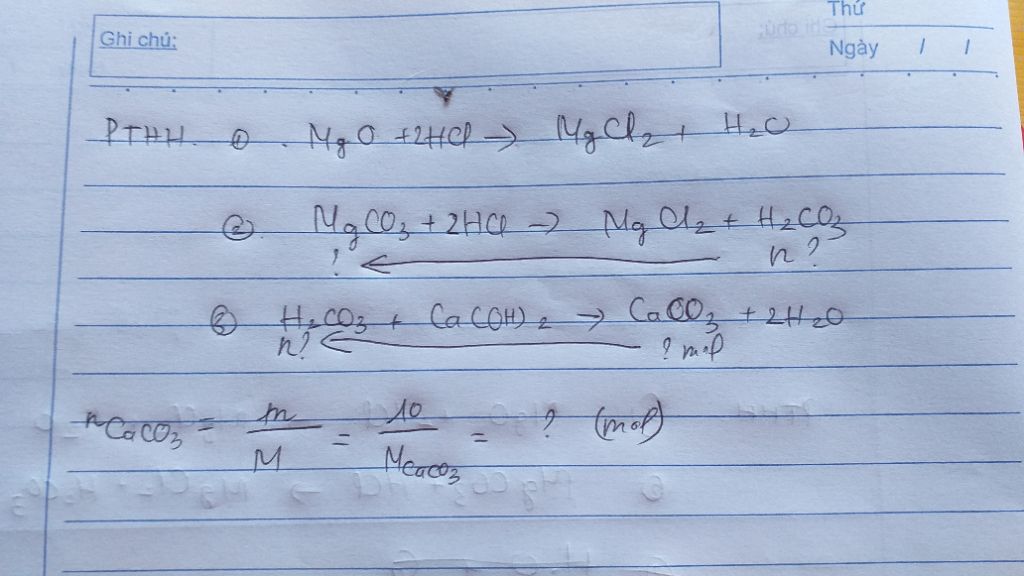 Thứ
Ghi chú:
Ngày / /
PTHH. ① . MgO + 2HCl → MgCl₂ + H₂O
②. MgCO₃ + 2HCl → MgCl₂ + H₂CO₃
? ← n?
③ H₂CO₃ + Ca(OH)₂ → CaCO₃ + 2H₂O
n? ← ? mol
nCaCO₃ = m/M = 10/MCaCO₃ = ? (mol)